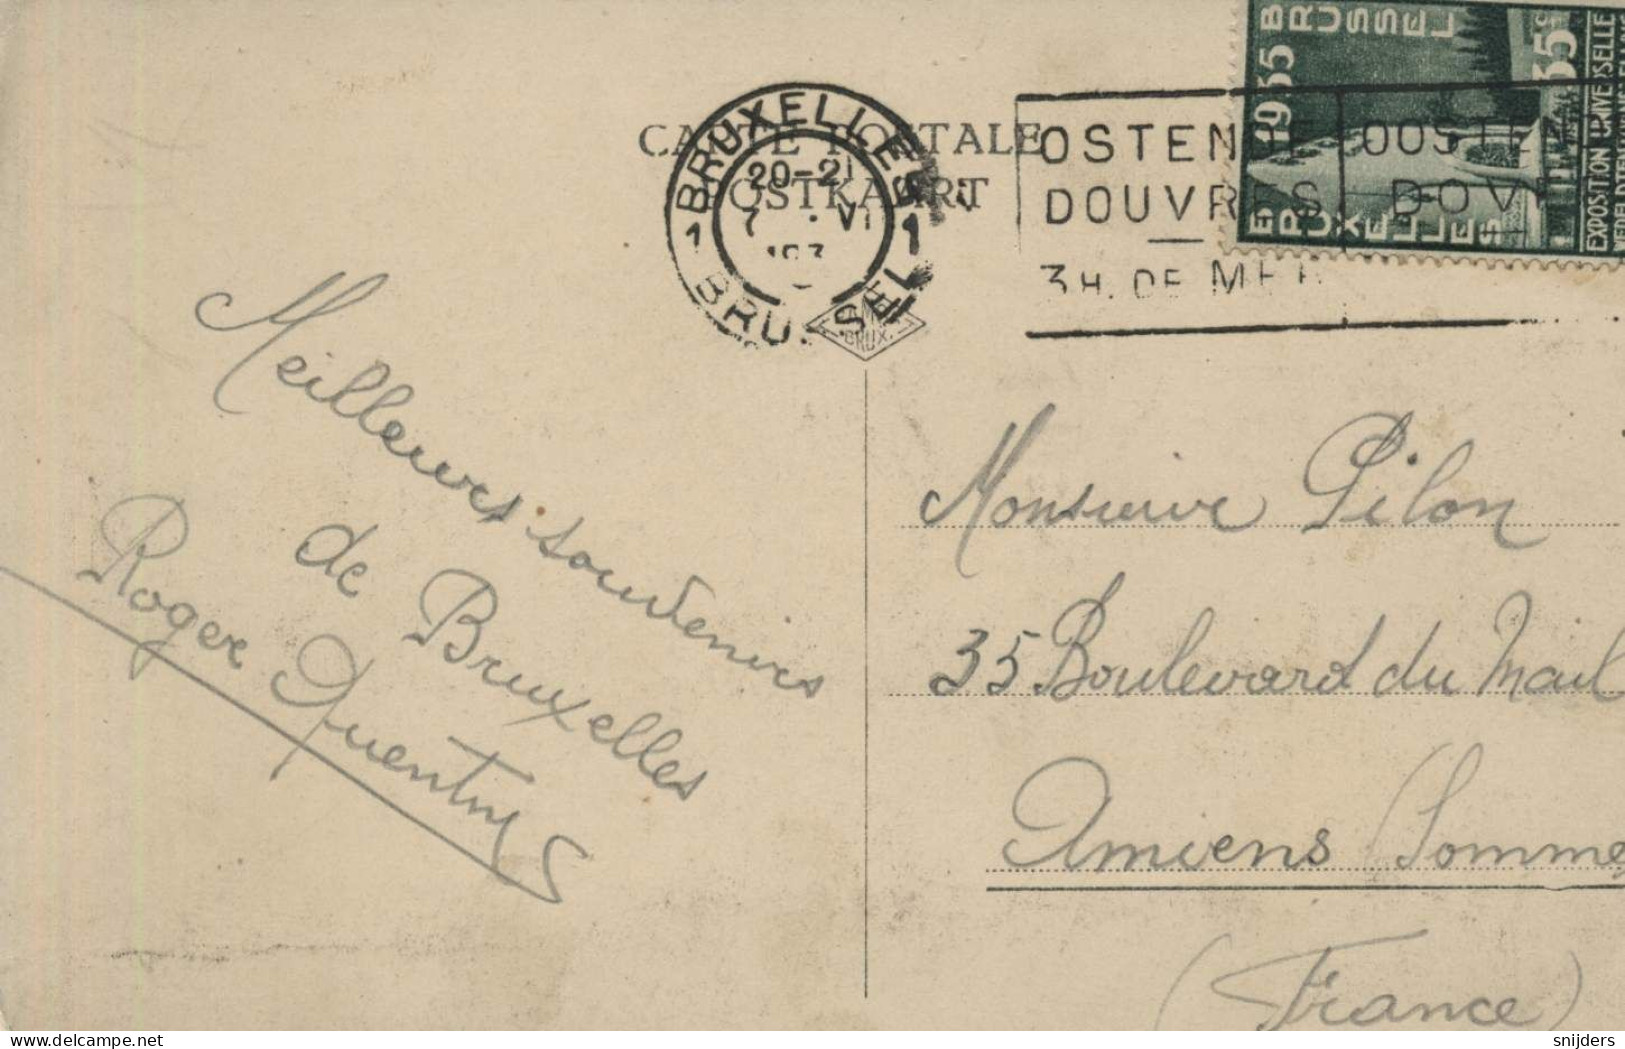 CARTE POSTALE
POSTKAART
1 BRUXELLES 1
20-21
7 VI
193
BRUSSEL
BRUX.
OSTENDE OOSTEN
DOUVRES DOV
3H. DE MER
1935 BRUSSEL
BRUXELLES
35c
EXPOSITION UNIVERSELLE
Meilleures souvenirs
de Bruxelles
Roger Quentin
Monsieur Pilon
35 Boulevard du Mail
Amiens (Somme)
(France)
snijders